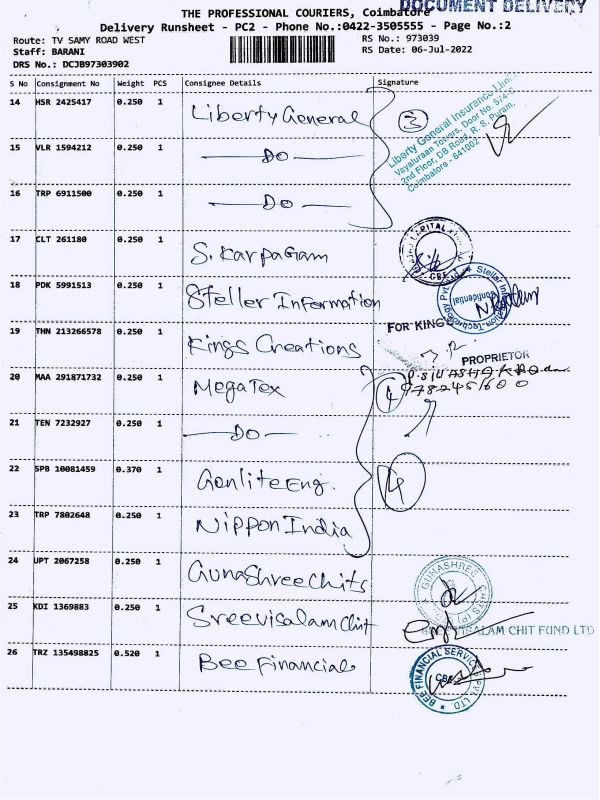 DOCUMENT DELIVERY
THE PROFESSIONAL COURIERS, Coimbatore
Delivery Runsheet - PC2 - Phone No.:0422-3505555 - Page No.:2
Route: TV SAMY ROAD WEST
RS No.: 973039
Staff: BARANI
RS Date: 06-Jul-2022
DRS No.: DCJB97303902
S No Consignment No Weight PCS Consignee Details Signature
14 HSR 2425417 0.250 1 Liberty General 3
Liberty General Insurance Ltd.
Vayaluraan Towers, Door No. 574-C
2nd Floor, DB Road, R. S. Puram,
Coimbatore - 641002
15 VLR 1594212 0.250 1 — DO —
16 TRP 6911500 0.250 1 — DO —
17 CLT 261180 0.250 1 S. Karpagam
CAPITAL
CBE
18 PDK 5991513 0.250 1 Steller Information
Stellar Information Technology Pvt. Ltd.
Confidential
FOR KINGS
19 THN 213266578 0.250 1 Kings Creations
PROPRIETOR
20 MAA 291871732 0.250 1 MegaTex 4
9782451600
21 TEN 7232927 0.250 1 — DO —
22 SPB 10081459 0.370 1 Gonlite Eng. 4
23 TRP 7802648 0.250 1 Nippon India
24 UPT 2067258 0.250 1 Gunashree Chits
GUNASHREE CHITS (P)
25 KDI 1369883 0.250 1 Sreevisalam Chit
SALAM CHIT FUND LTD
26 TRZ 135498825 0.520 1 Bee Financial
BEE FINANCIAL SERVICES PVT. LTD.
CBE